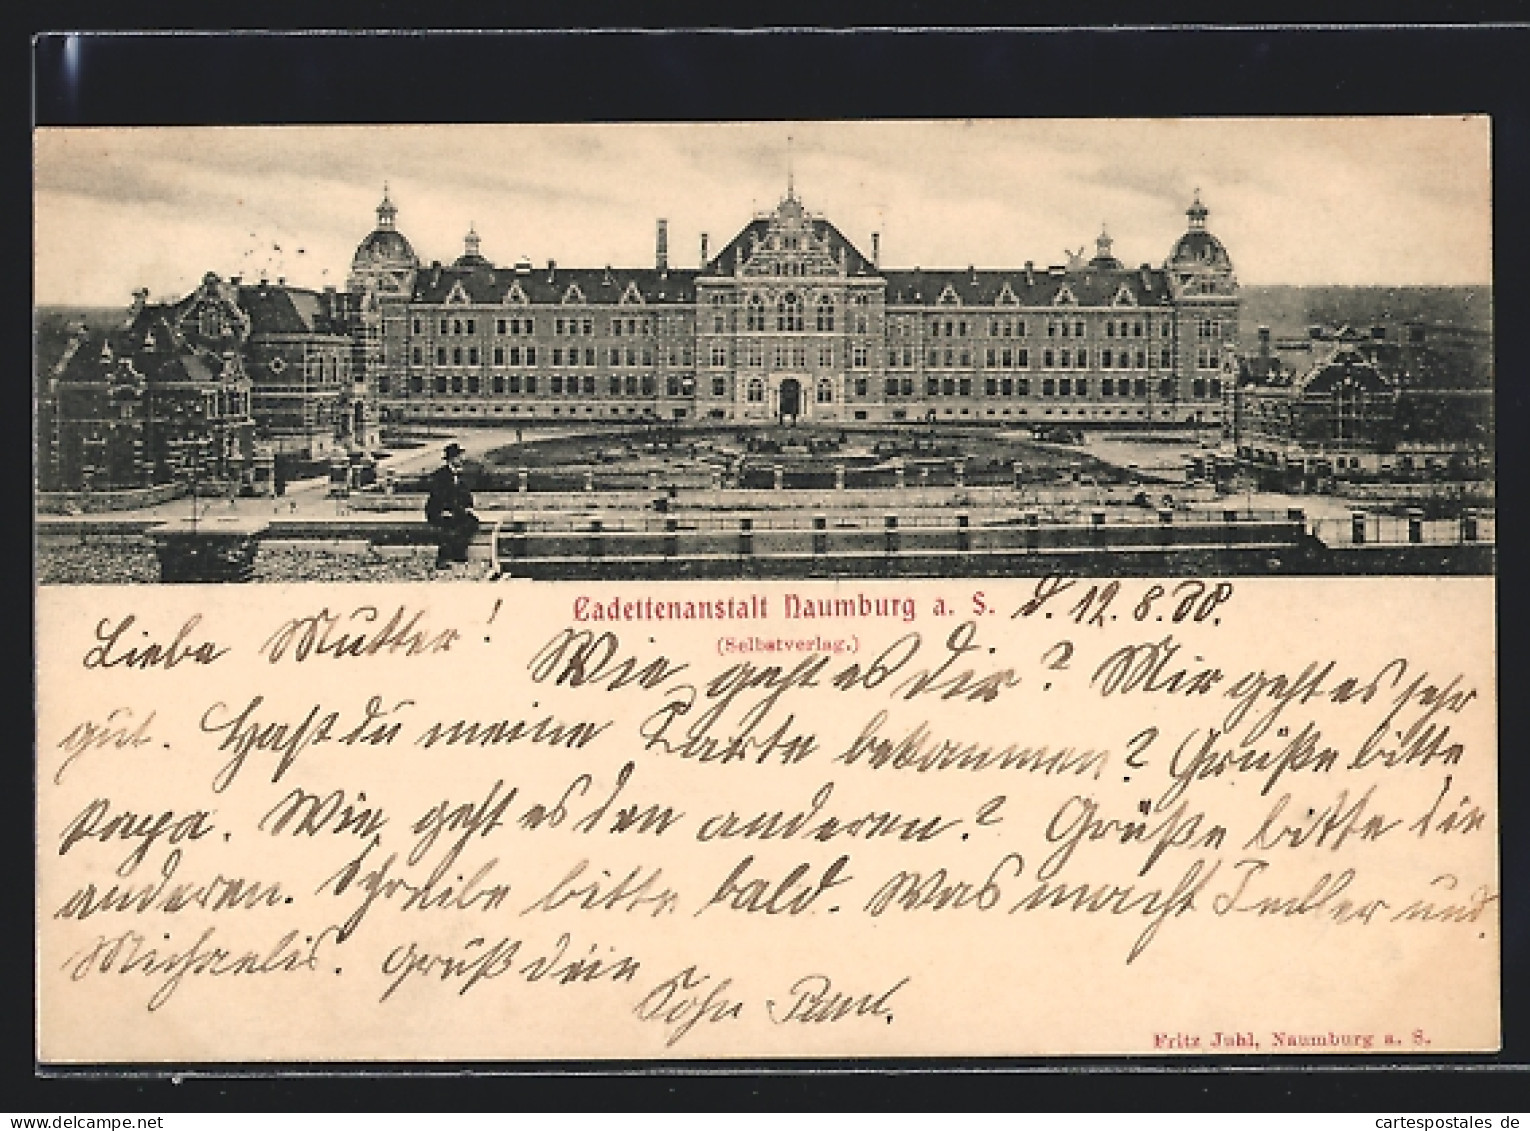 Cadettenanstalt Naumburg a. S.
(Selbstverlag.)
d. 12. 8. 00.
Liebe Mutter!
Wie geht es dir? Mir geht es sehr
gut. Hast du meine Karte bekommen? Grüße bitte
Papa. Wie geht es den anderen? Grüße bitte die
anderen. Schreibe bitte bald. Was macht und
Michaelis. Gruß dein
Sohn Paul.
Fritz Juhl, Naumburg a. S.
www.delcampe.net
cartespostales de